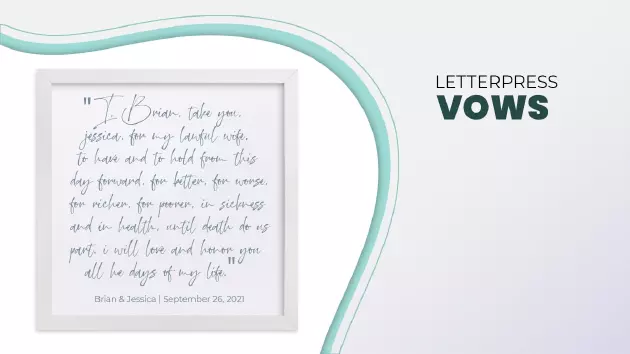 "I, Brian, take you,
jessica, for my lawful wife,
to have and to hold from this
day forward, for better, for worse,
for richer, for poorer, in sickness
and in health, until death do us
part, i will love and honor you
all he days of my life."
Brian & Jessica | September 26, 2021
LETTERPRESS
VOWS